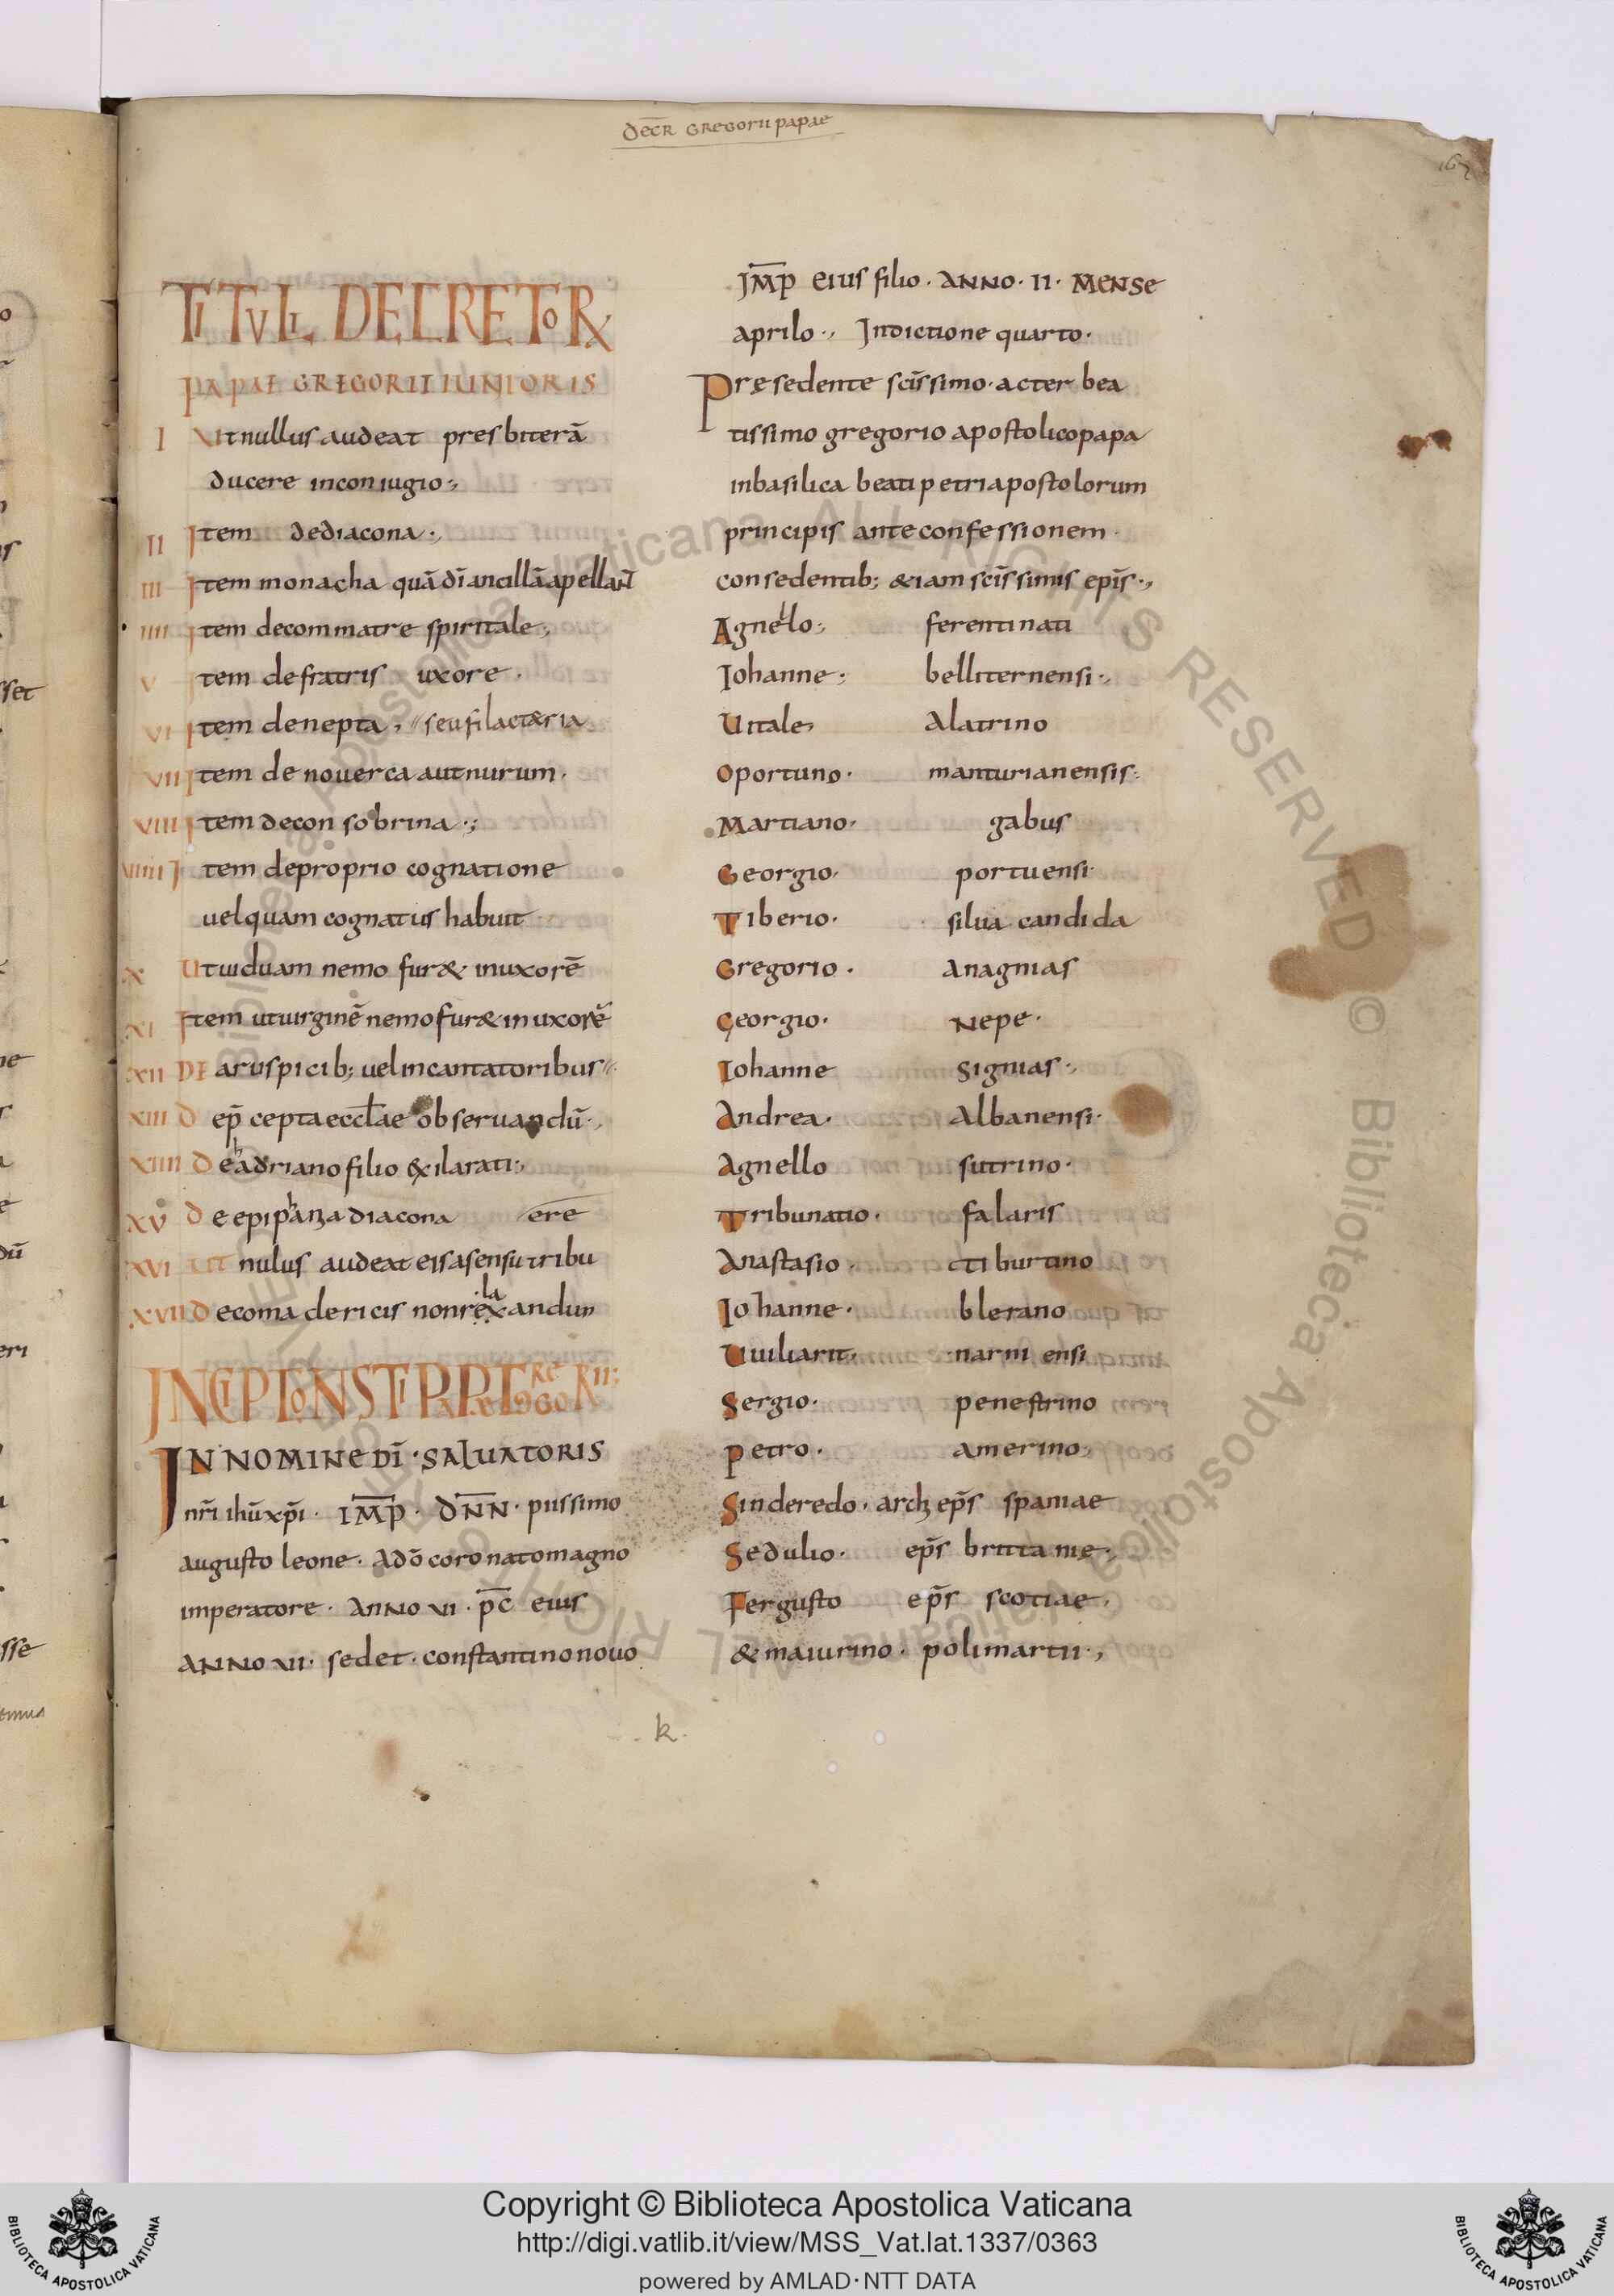 decr̄ gregorii papae
167
TITVLI DECRETOR̄
PAPAE GREGORII IUNIORIS
I Ut nullus audeat presbiterā
ducere in coniugio
II Item de diacona
III Item monacha quā dī ancillā apellaN̄
IIII Item de commatre spiritale
V Item de fratris uxore
VI Item de nepta seu filacteria
VII Item de nouerca aut nurum
VIII Item de consobrina
VIIII Item de proprio cognatione
uel quam cognatus habuit
X Ut uiduam nemo fur& in uxorē
XI Item ut uirginē nemo fur& in uxorē
XII DE aruspicib; uel incantatoribus
XIII De p̄cepta eccl̄ae obseruandū
XIIII De hadriano filio exilarati
XV De epiphania diacona
XVI UT nulus audeat
XVII De coma clericis non relaxandum
INCIP CONSTI PP GREGORII;
IN NOMINE DĪ · SALUATORIS
nr̄i ihū xp̄i · IM̄P · DN̄N · piissimo
augusto leone · A dō coronato magno
imperatore · ANNO VI · pc̄ eius
ANNO VI · sedet · constantino nouo
IM̄P eius filio · ANNO · II · MENSE
aprilo · Indictione quarto ·
Presedente scīssimo · ac ter bea
tissimo gregorio apostolico papa
in basilica beati petri apostolorum
principis ante confessionem
consedentib; &iam scīssimis epīs ·,
Agnello; ferentinati
Iohanne; belliternensi ·,
Uitale, Alatrino
Oportuno · manturianensis
Martiano · gabus
Georgio, portuensi
Tiberio · silua candida
Gregorio · Anagnias
Georgio · Nepe ·
Iohanne Signias ·,
Andrea · Albanensi ·
Agnello sutrino ·
Tribunatio · falaris
Anastasio · tiburtino
Iohanne · blerano
Uuiliarit, narniensi
Sergio · penestrino
Petro · amerino
Sinderedo · archiep̄s spaniae
Sedulio · ep̄s brittanie ·,
Fergusto ep̄s scotiae ·
& maiurino · polimartii ·,
k
Copyright © Biblioteca Apostolica Vaticana
http://digi.vatlib.it/view/MSS_Vat.lat.1337/0363
powered by AMLAD·NTT DATA
BIBLIOTECA APOSTOLICA VATICANA
BIBLIOTECA APOSTOLICA VATICANA